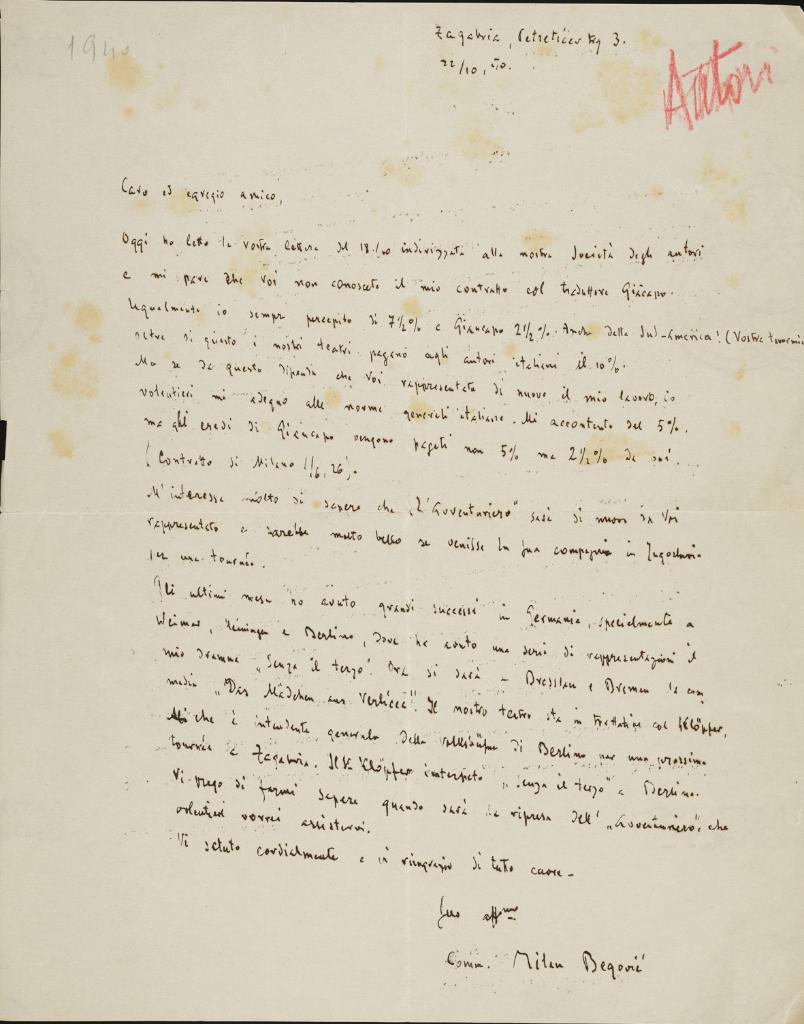 1940
Zagabria, Petretićev trg 3.
22/10, 40.
Autori
Caro ed egregio amico,
Oggi ho letto la vostra lettera del 18./10 indirizzata alla nostra Società degli autori
e mi pare che voi non conoscete il mio contratto col traduttore Giancapo.
Ugualmente io sempre percepito di 7½% e Giancapo 2½%. Anche della Sud-America! (Vostra
oltre di questo i nostri teatri pagano agli autori italiani il 10%.
Ma se da questo dipende che voi rappresentate di nuovo il mio lavoro, io
volentieri mi adegno alle norme generali italiane. Mi accontento del 5%.
ma gli eredi di Giancapo vengono pagati non 5% ma 2½% da
(Contratto di Milano 1/6, 26).
M'interessa molto di sapere che „L'Avventuriero" sarà di nuovo da Voi
rappresentato e sarebbe molto bello se venisse la Sua compagnia in Jugoslavia
per una tournée.
Gli ultimi mesi ho avuto grandi successi in Germania, specialmente a
Weimar, Meiningen e Berlino, dove ha avuto una serie di rappresentazioni il
mio dramma „Senza il terzo". Ora si darà a Bresslau e Bremen la com
media „Das Mädchen aus Verlicca". Il nostro teatro sta in trattative col Klöpfer,
che è intendente generale della Volksbühne di Berlino per una prossima
tournée a Zagabria. Il Klöpfer interpetò „Senza il terzo" a Berlino.
Vi prego di farmi sapere quando sarà la ripresa dell' „Avventuriero", che
volentieri vorrei assistervi.
Vi saluto cordialmente e vi ringrazio di tutto cuore –
Suo affmo
Comm. Milan Begović